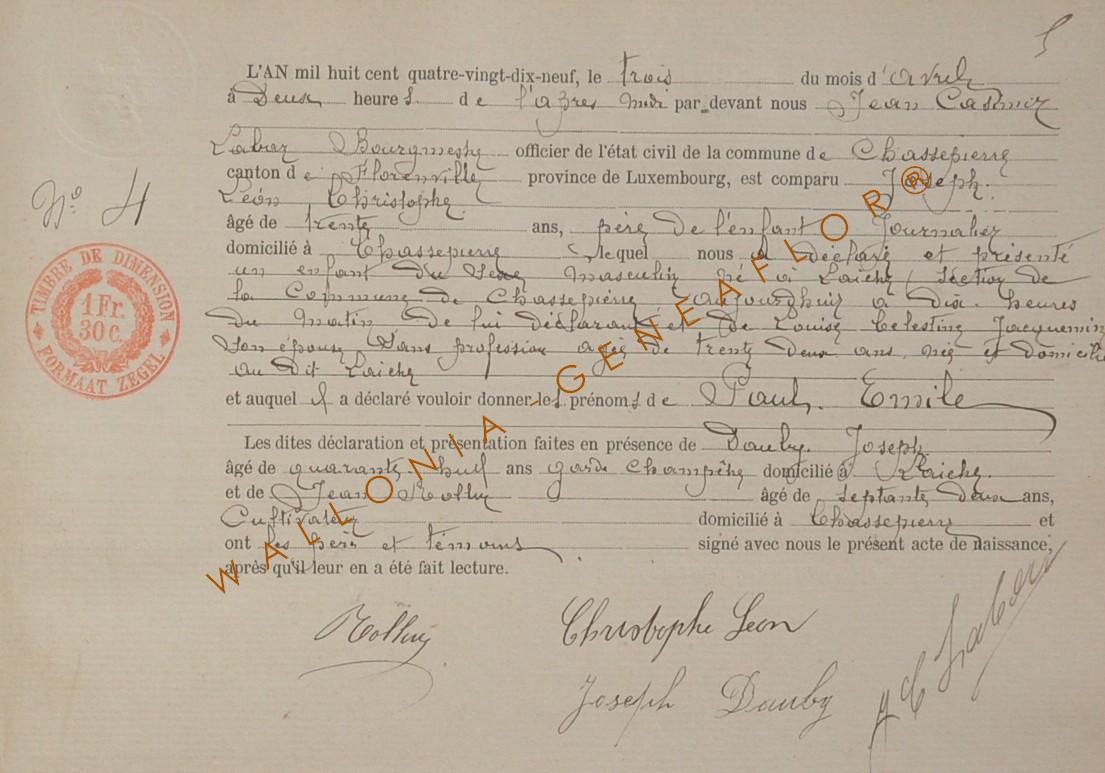 5
L'AN mil huit cent quatre-vingt-dix-neuf, le trois du mois d'avril
à Deux heures de l'après midi par-devant nous Jean Casimir
Labar Bourgmestre officier de l'état civil de la commune de Chassepierre
canton de Florenville province de Luxembourg, est comparu Joseph
Léon Christophe
N° 4
âgé de trente ans, père de l'enfant Journalier
domicilié à Chassepierre lequel nous a déclaré et présenté
un enfant du sexe masculin né à Laiche section de
la Commune de Chassepierre aujourdhui a dix heures
du matin de lui déclarant et de Louise Celestine Jacquemin
son épouse sans profession agée de trente deux ans, née et domicilié
au dit Laiche
et auquel il a déclaré vouloir donner les prénoms de Paul Emile
Les dites déclaration et présentation faites en présence de Dauby Joseph
âgé de quarante huit ans garde Champêtre domicilié à Laiche
et de Jean Rollin âgé de septante deux ans,
Cultivateur domicilié à Chassepierre et
ont les père et témoins signé avec nous le présent acte de naissance,
après qu'il leur en a été fait lecture.
TIMBRE DE DIMENSION
1 Fr.
30 c.
FORMAAT ZEGEL
WALLONIA-GENEAFLOR®
Rollin Christophe Leon
Joseph Dauby
JC Labar